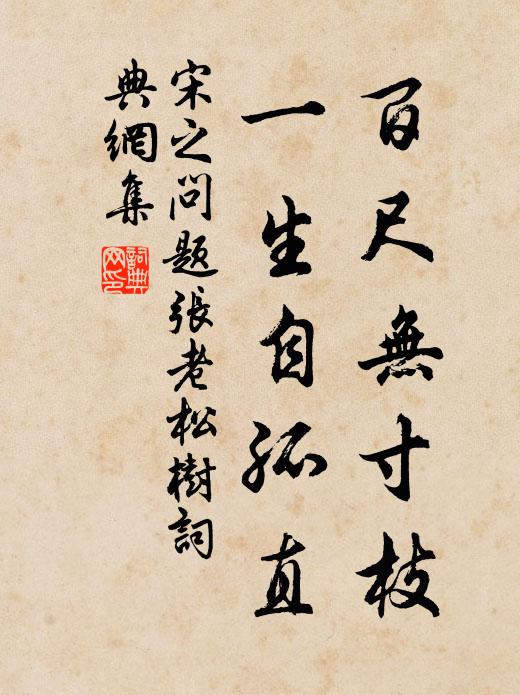 百尺無寸枝
一生自孤直
宋之問題張老松樹詞
典網集
詞典網印